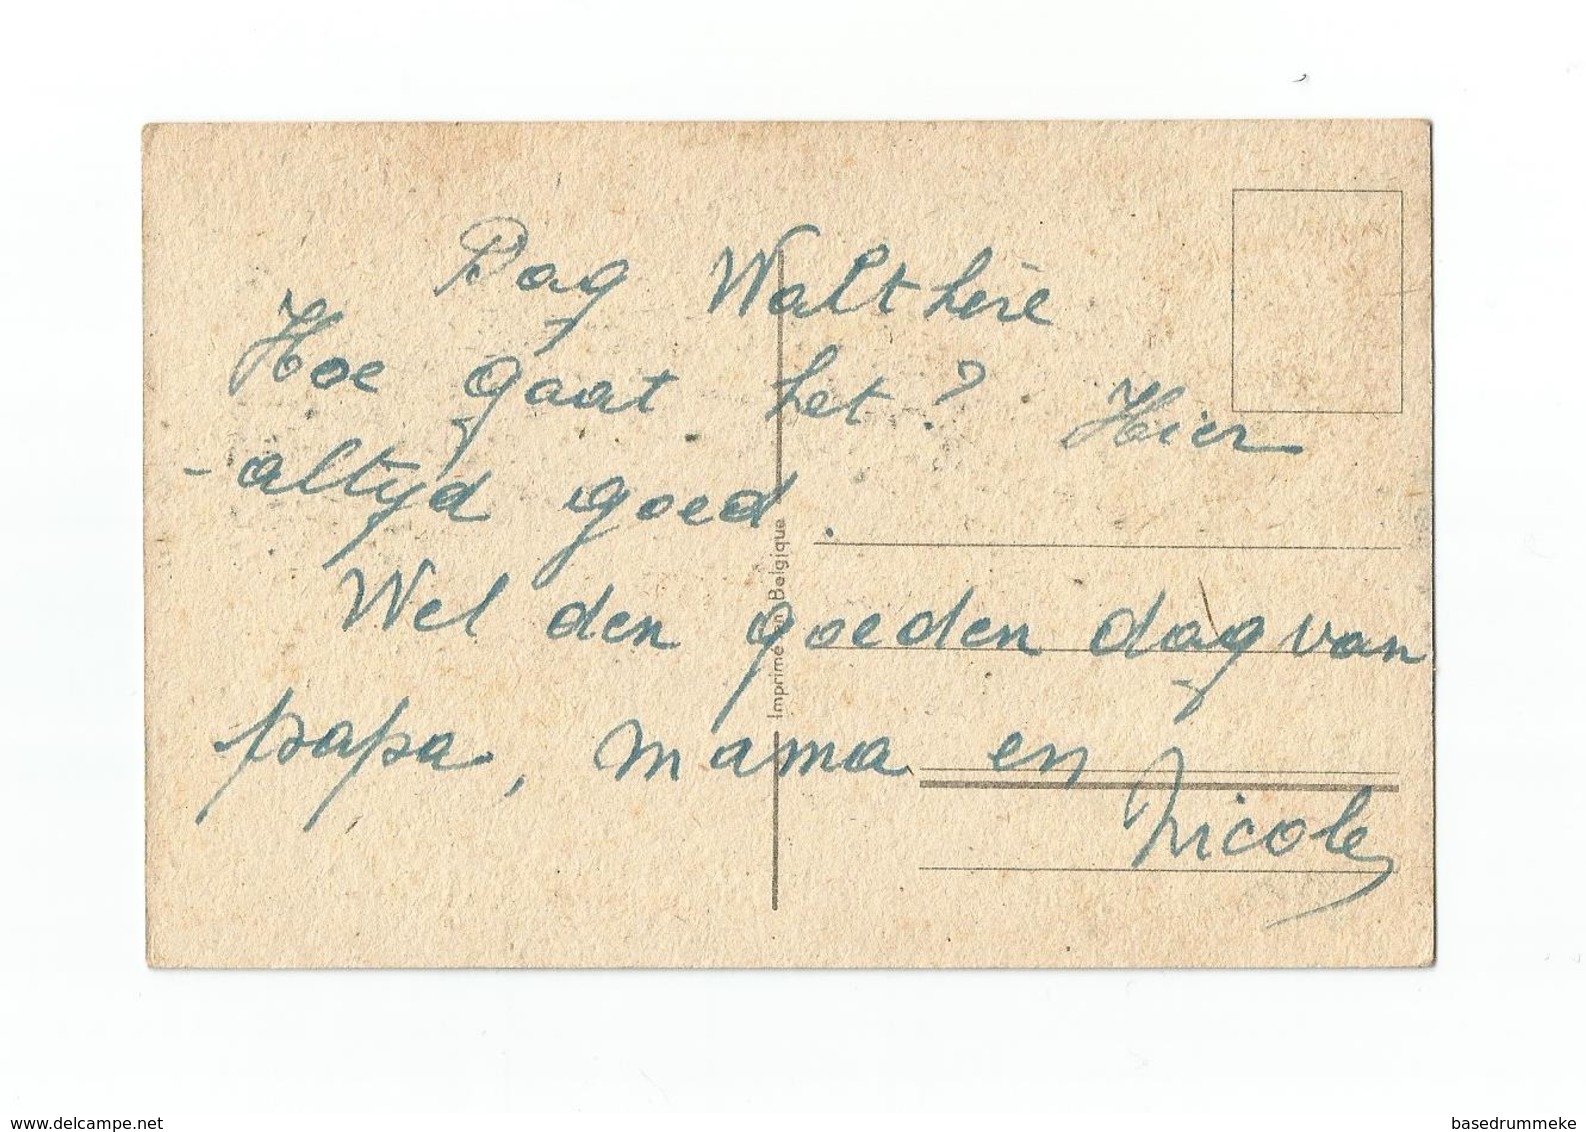 Dag Walthère
Hoe gaat het? Hier
- altyd goed.
Wel den goeden dag van
papa, mama en
Nicole
Imprimé en Belgique
www.delcampe.net
basedrummeke